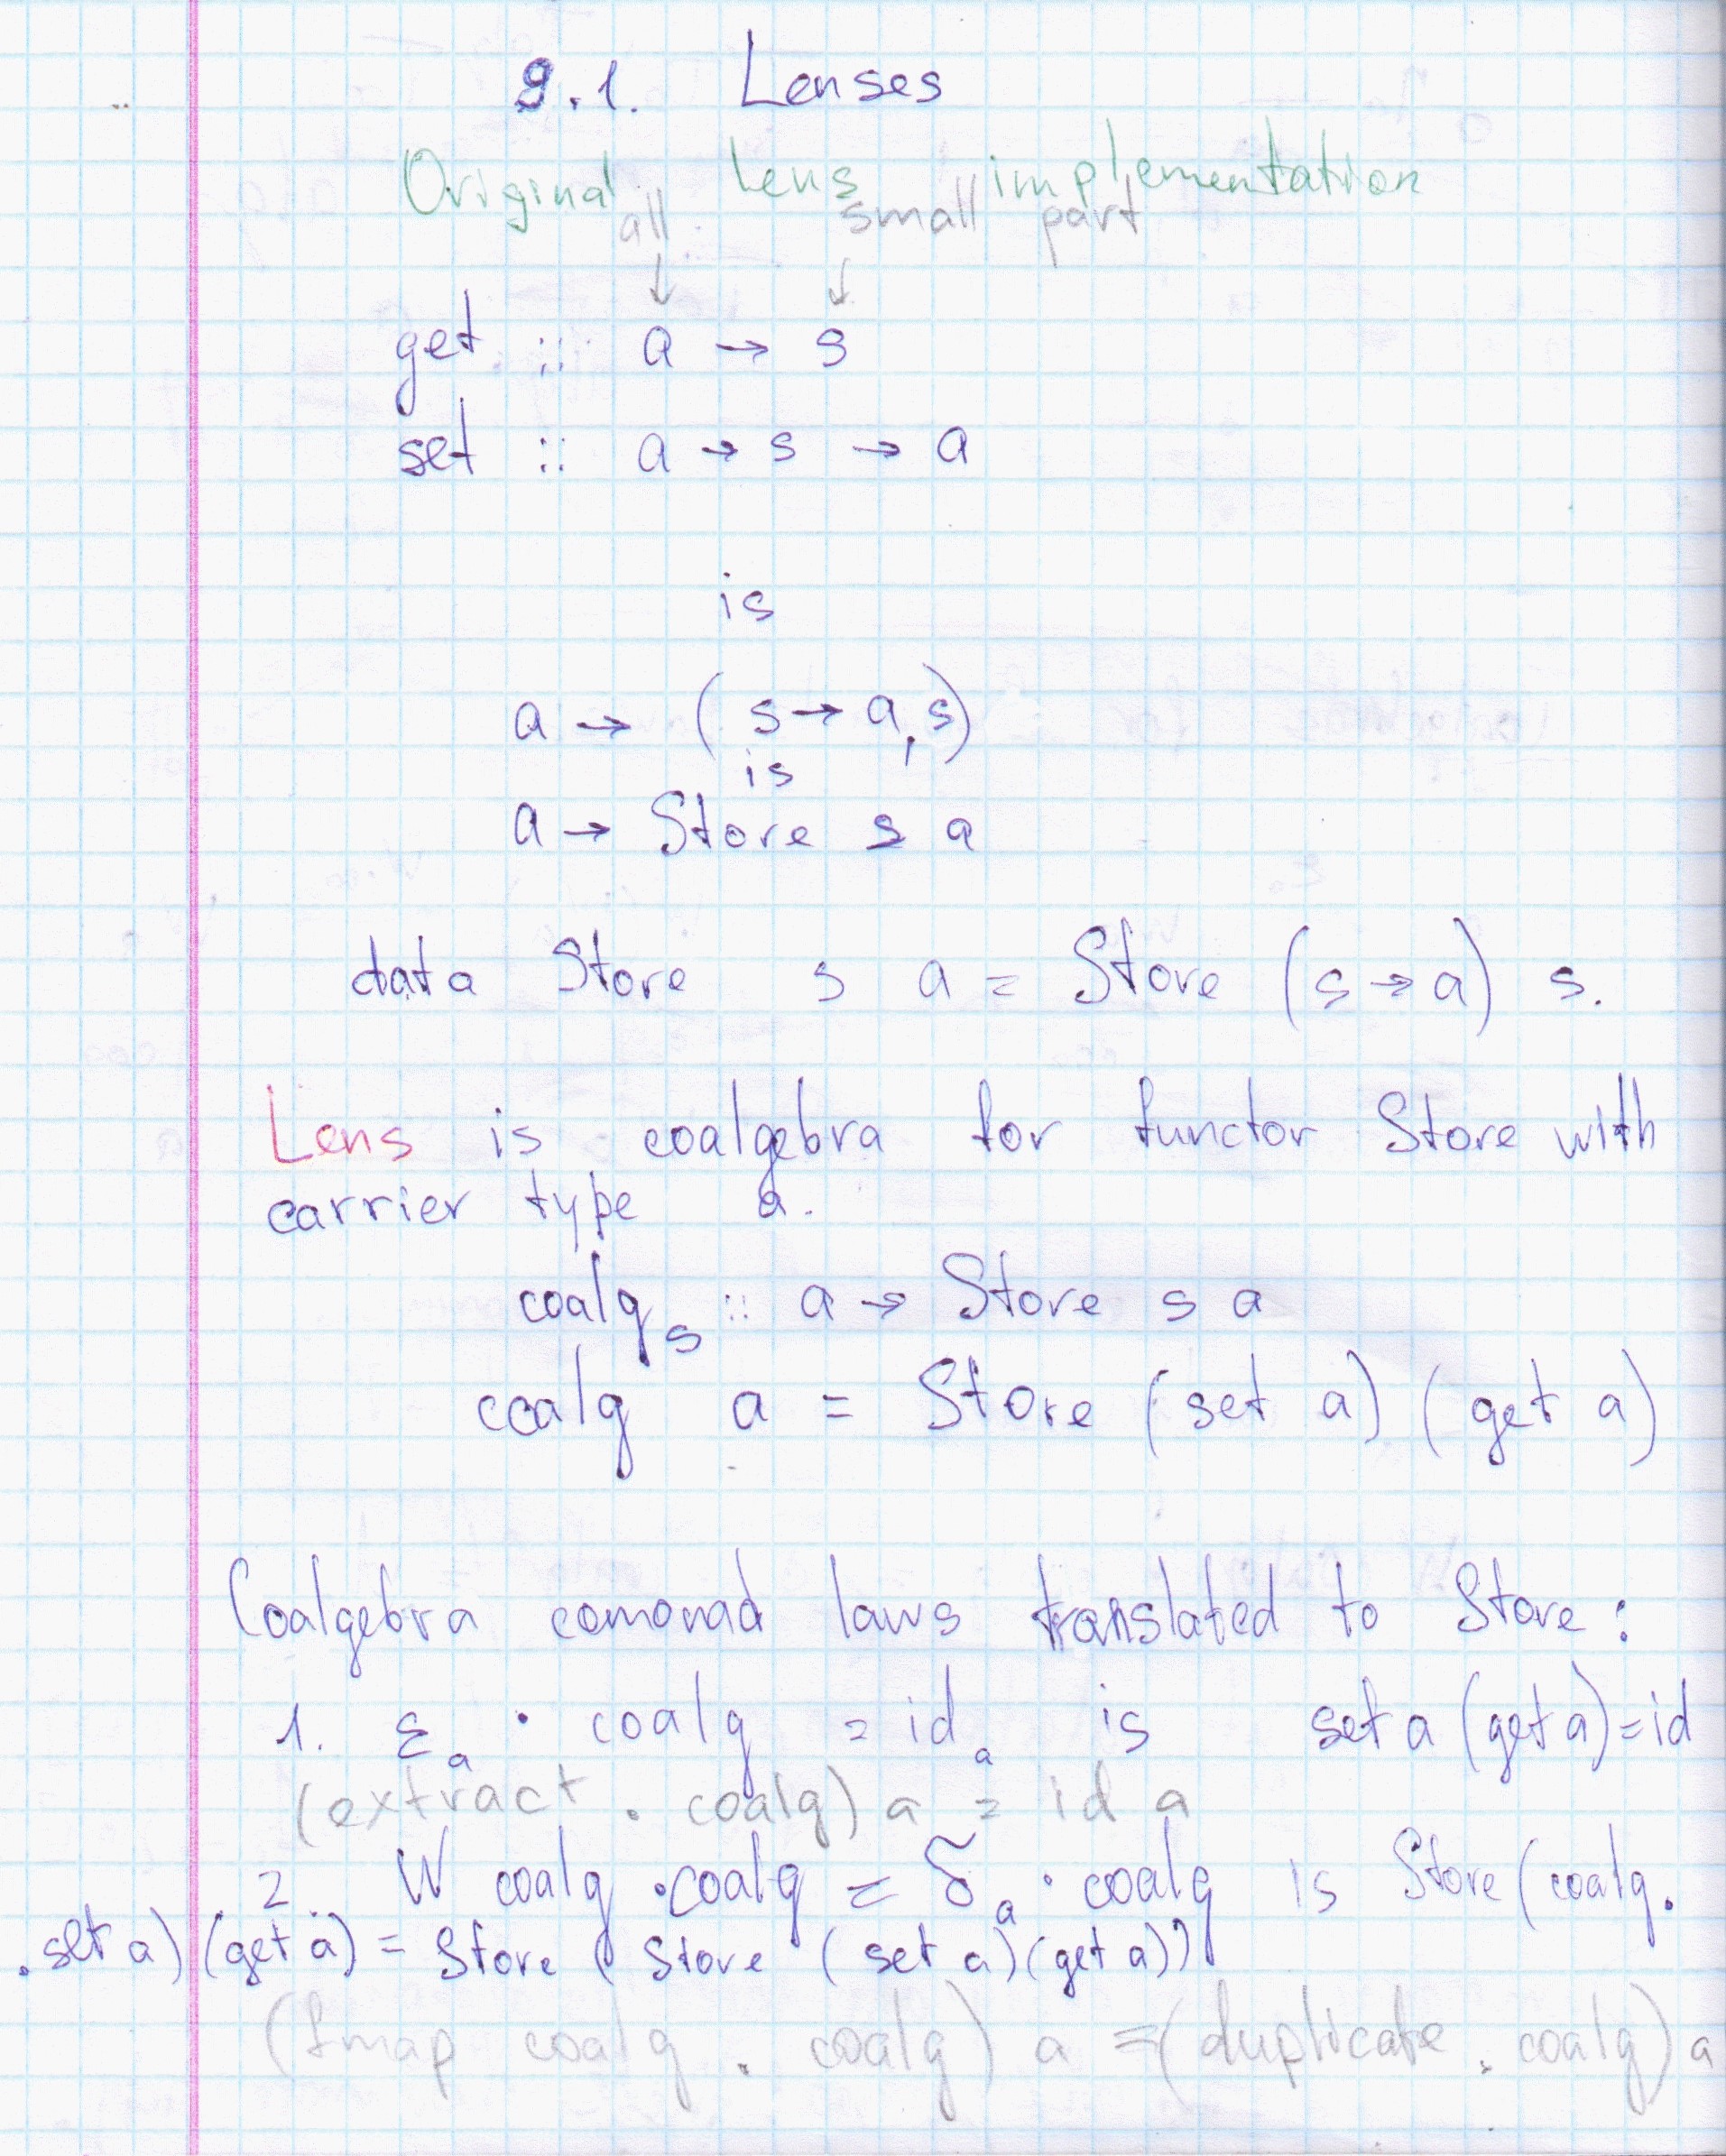 9.1. Lenses
Original Lens implementation
all small part
↓ ↓
get :: a → s
set :: a → s → a
is
a → ( s → a, s)
is
a → Store s a
data Store s a = Store (s → a) s.
Lens is coalgebra for functor Store with
carrier type a.
coalg_s :: a → Store s a
coalg a = Store (set a) (get a)
Coalgebra comonad laws translated to Store:
1. ε_a · coalg = id_a is set a (get a) = id
(extract . coalg) a = id a
2. W coalg · coalg = δ_a · coalg is Store (coalg.
. set a) (get a) = Store ( Store (set a) (get a))
(fmap coalg . coalg) a = (duplicate . coalg) a